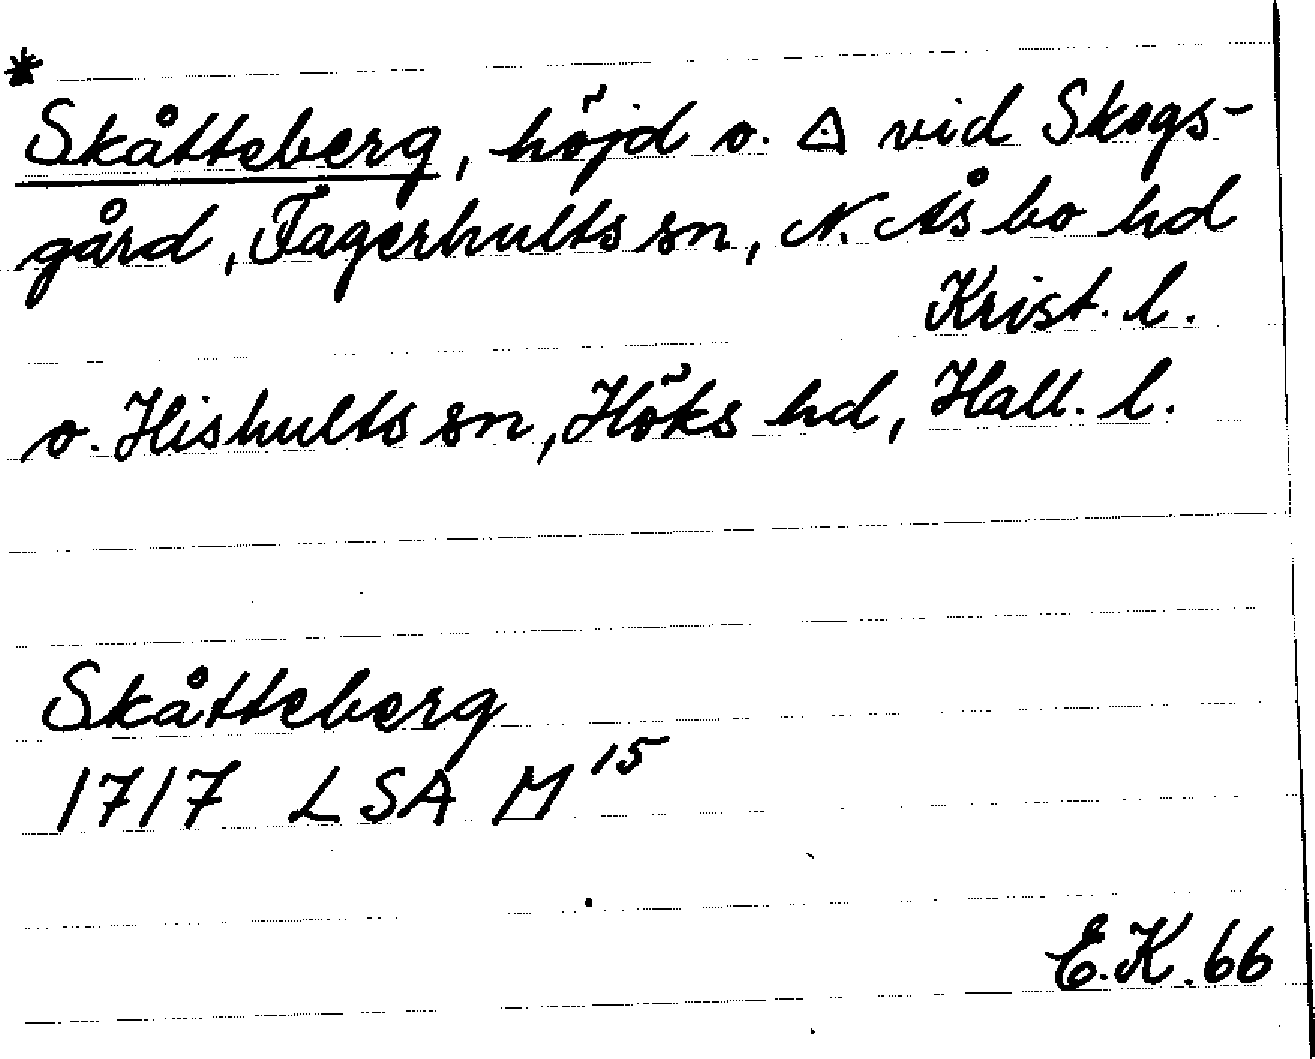 *
Skåtteberg, höjd o. ◬ vid Skogs-
gård, Fagerhults sn, N. Åsbo hd
Krist. l.
o. Hishults sn, Höks hd, Hall. l.
Skåtteberg
1717 LSA M 15
E.K. 66